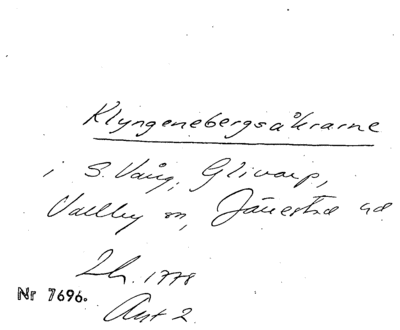 Klyngenebergsåkrarne
i S. Vång, Glivarp,
Vallby sn, Järrestad hd
Lh. 1778
Nr 7696.
Akt 2